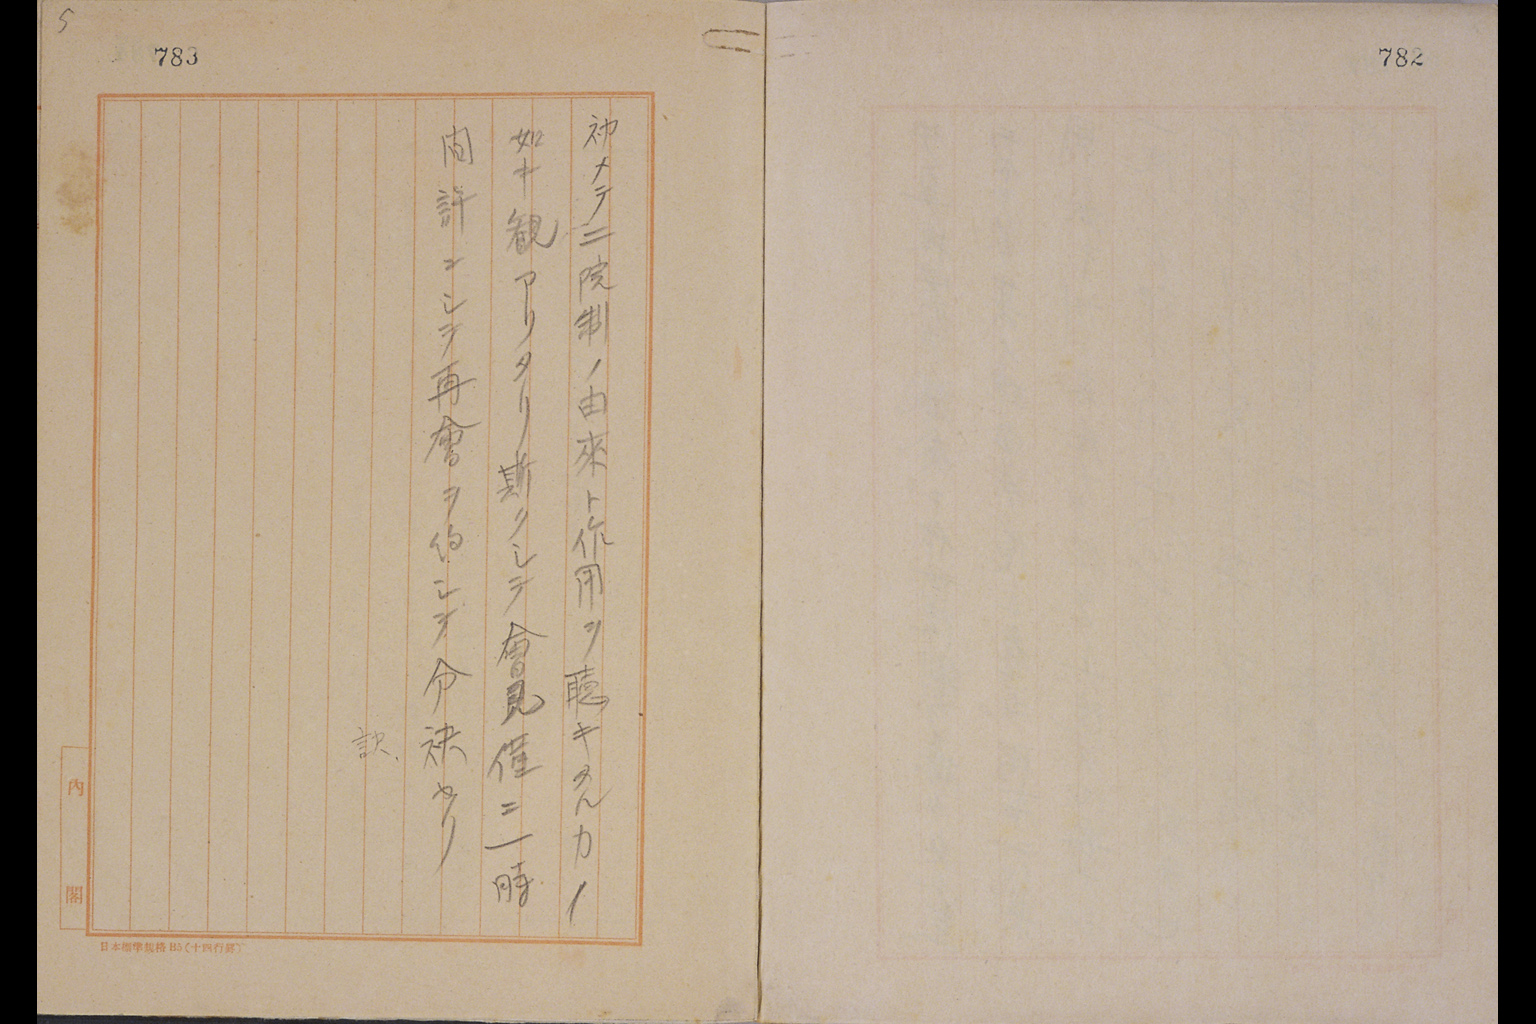 782
5
783
初メテ二院制ノ由來ト作用ヲ聴キタルカノ
如キ観アリタリ斯クシテ會見僅ニ一時
間許ニシテ再會ヲ約シテ分袂セリ
訣、
内閣
日本標準規格B5(十四行罫)